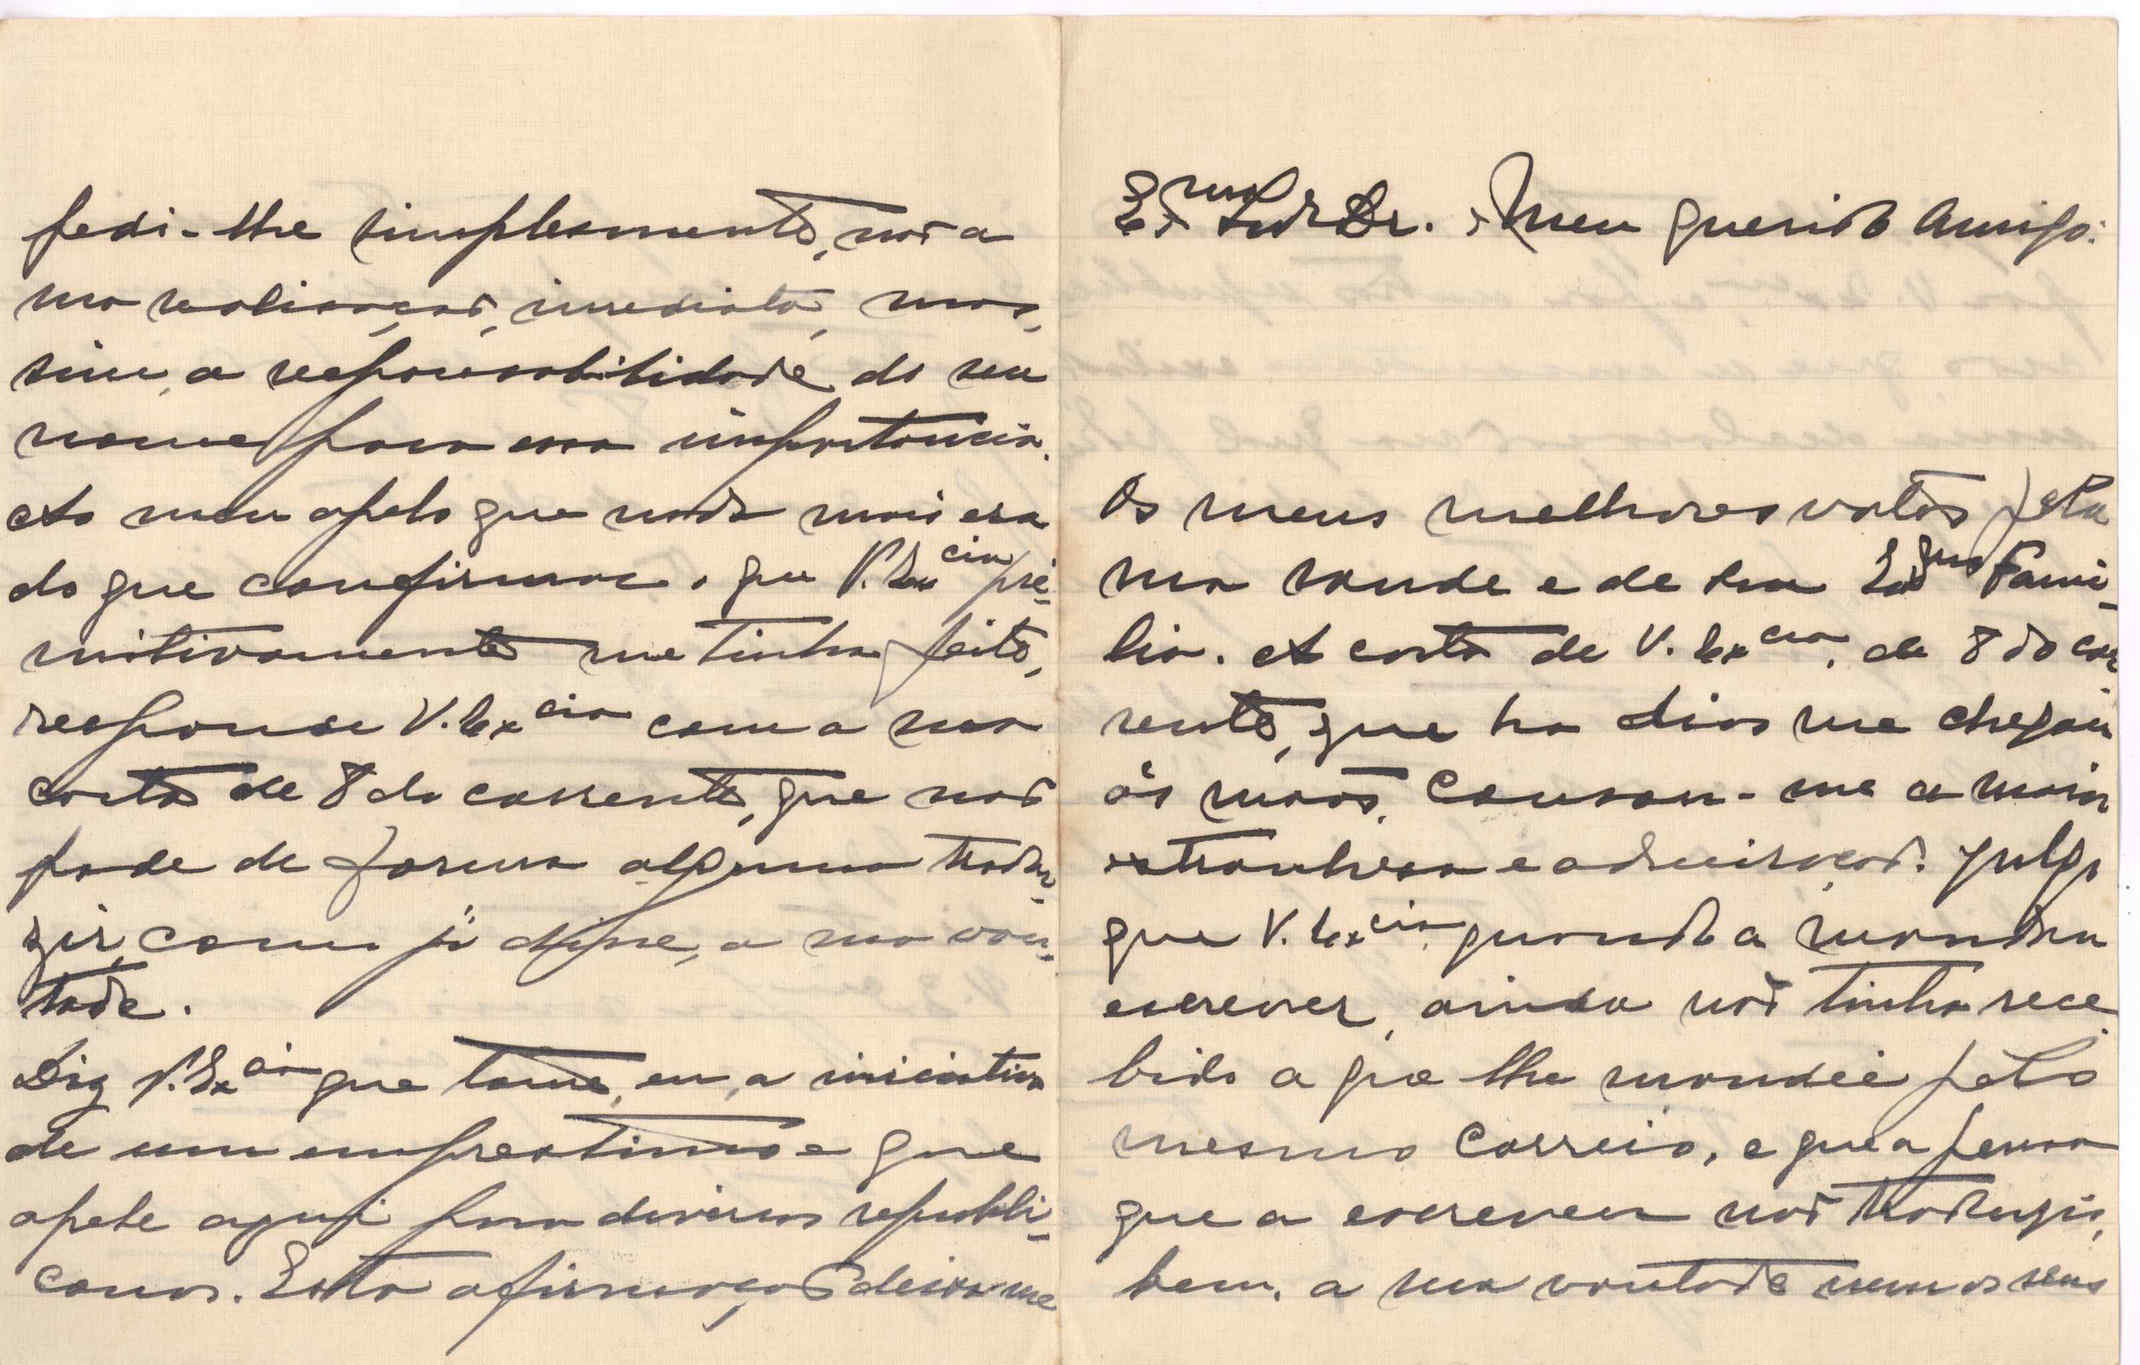 Ex.mo Snr Dr. e Meu querido Amigo:
Os meus melhores votos pela
sua saude e de sua Ex.ma Fami-
lia. A carta de V. Ex.cia, de 8 do cor
rente, que ha dias me chegou
ás mãos, causou-me a maior
extranhesa e admiração. Julgo
que V. Ex.cia, quando a mandou
escrever, ainda não tinha rece
bido a que lhe mandei pelo
mesmo correio, e que a pena
que a escreveu não traduziu,
bem, a sua vontade nem os seus
pedi-lhe simplesmente, não a
sua realisação, imediata, mas,
sim, a responsabilidade do seu
nome para essa importancia.
Ao meu apelo que nada mais era
do que confirmar o que V. Ex.cia pri-
mitivamente me tinha feito,
responde V. Ex.cia com a sua
carta de 8 do corrente, que não
pode de forma alguma tradu-
zir, como já disse, a sua von-
tade.
Diz V. Ex.cia que tome, eu, a iniciativa
de um emprestimo e que
apele aqui para diversos republi-
canos. Esta afirmação deixa-me